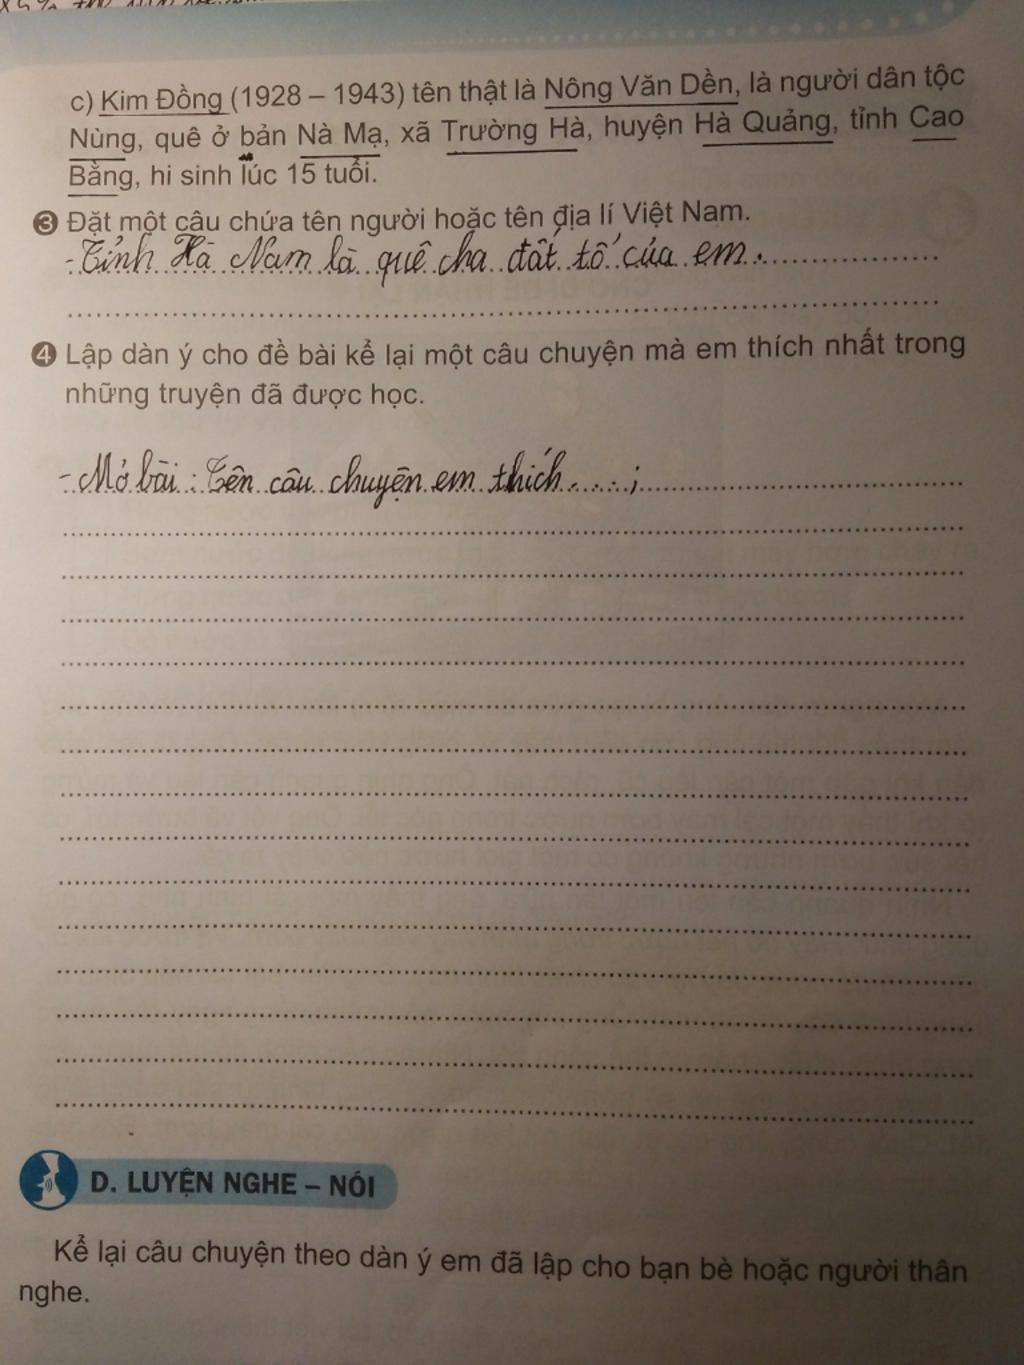 c) Kim Đồng (1928 – 1943) tên thật là Nông Văn Dền, là người dân tộc
Nùng, quê ở bản Nà Mạ, xã Trường Hà, huyện Hà Quảng, tỉnh Cao
Bằng, hi sinh lúc 15 tuổi.
3 Đặt một câu chứa tên người hoặc tên địa lí Việt Nam.
- Tỉnh Hà Nam là quê cha đất tổ của em.
4 Lập dàn ý cho đề bài kể lại một câu chuyện mà em thích nhất trong
những truyện đã được học.
- Mở bài : Tên câu chuyện em thích.....;
D. LUYỆN NGHE – NÓI
Kể lại câu chuyện theo dàn ý em đã lập cho bạn bè hoặc người thân
nghe.